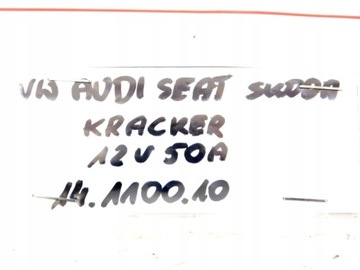 VW AUDI SEAT SKODA
KRACKER
12V 50A
14.1100.10